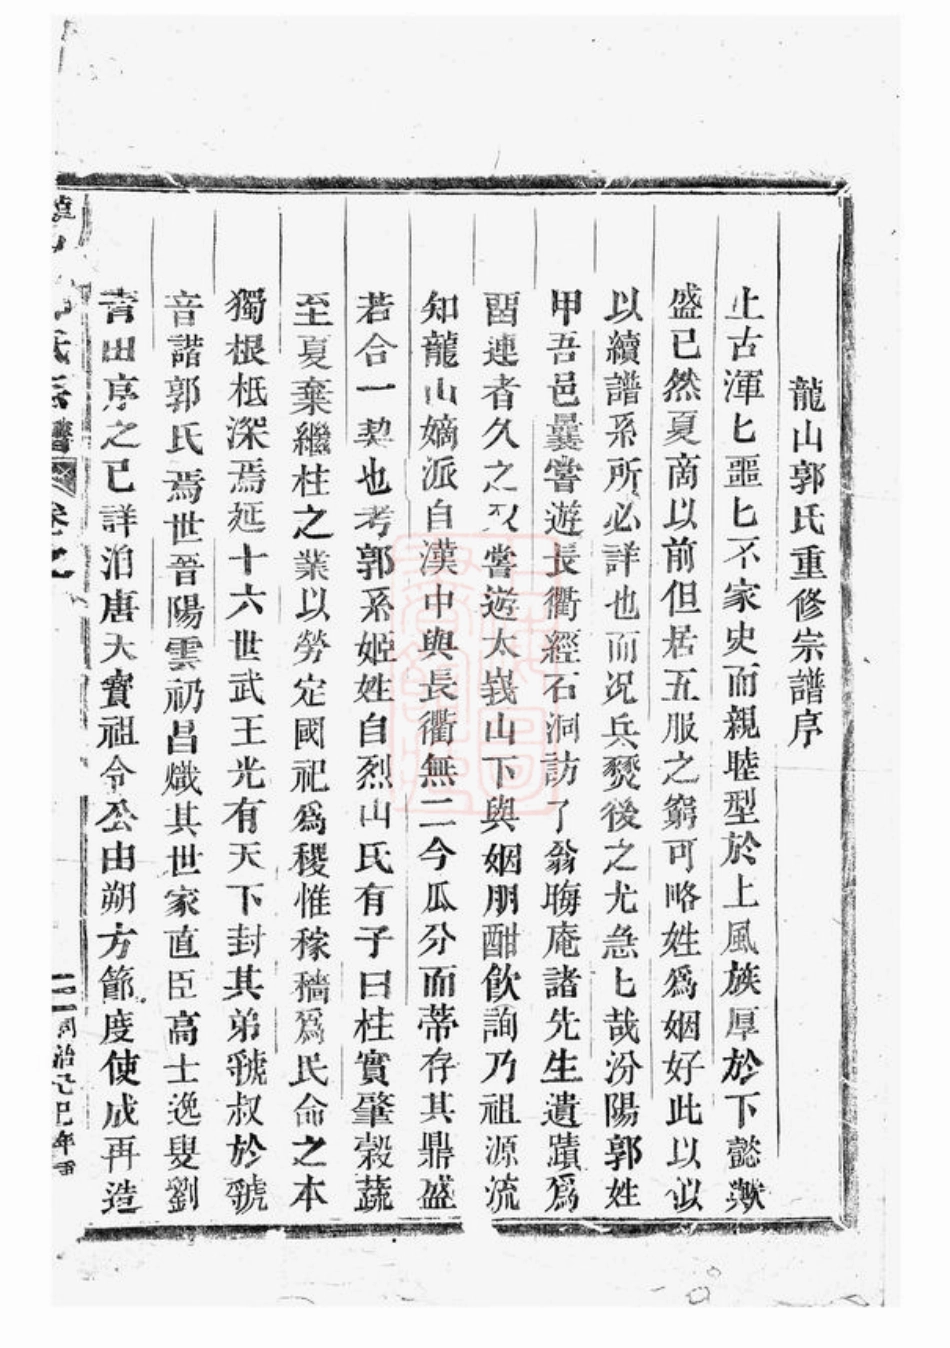 龍山郭氏重修宗譜序
上古渾匕噩匕不家史而親睦型於上風族厚於下懿歟
盛已然夏商以前但居五服之窮可略姓爲姻好此以
以續譜系所必詳也而况兵燹後之尤急匕哉汾陽郭姓
甲吾邑曩嘗遊長衢經石洞訪了翁晦庵諸先生遺蹟爲
畱連者久之又嘗遊太峩山下與姻朋酣飲詢乃祖源流
知龍山嫡派自漢中與長衢無二今瓜分而蒂存其鼎盛
若合一契也考郭系姬姓自烈山氏有子曰柱實肇穀蔬
至夏棄繼柱之業以勞定國祀爲稷惟稼穡爲民命之本
獨根柢深焉延十六世武王光有天下封其弟虢叔於虢
音諧郭氏焉世晉陽雲礽昌熾其世家直臣高士逸叟劉
青田序之已詳洎唐天寳祖令公由朔方節度使成再造
氏宗譜 卷之 二 同治己巳年